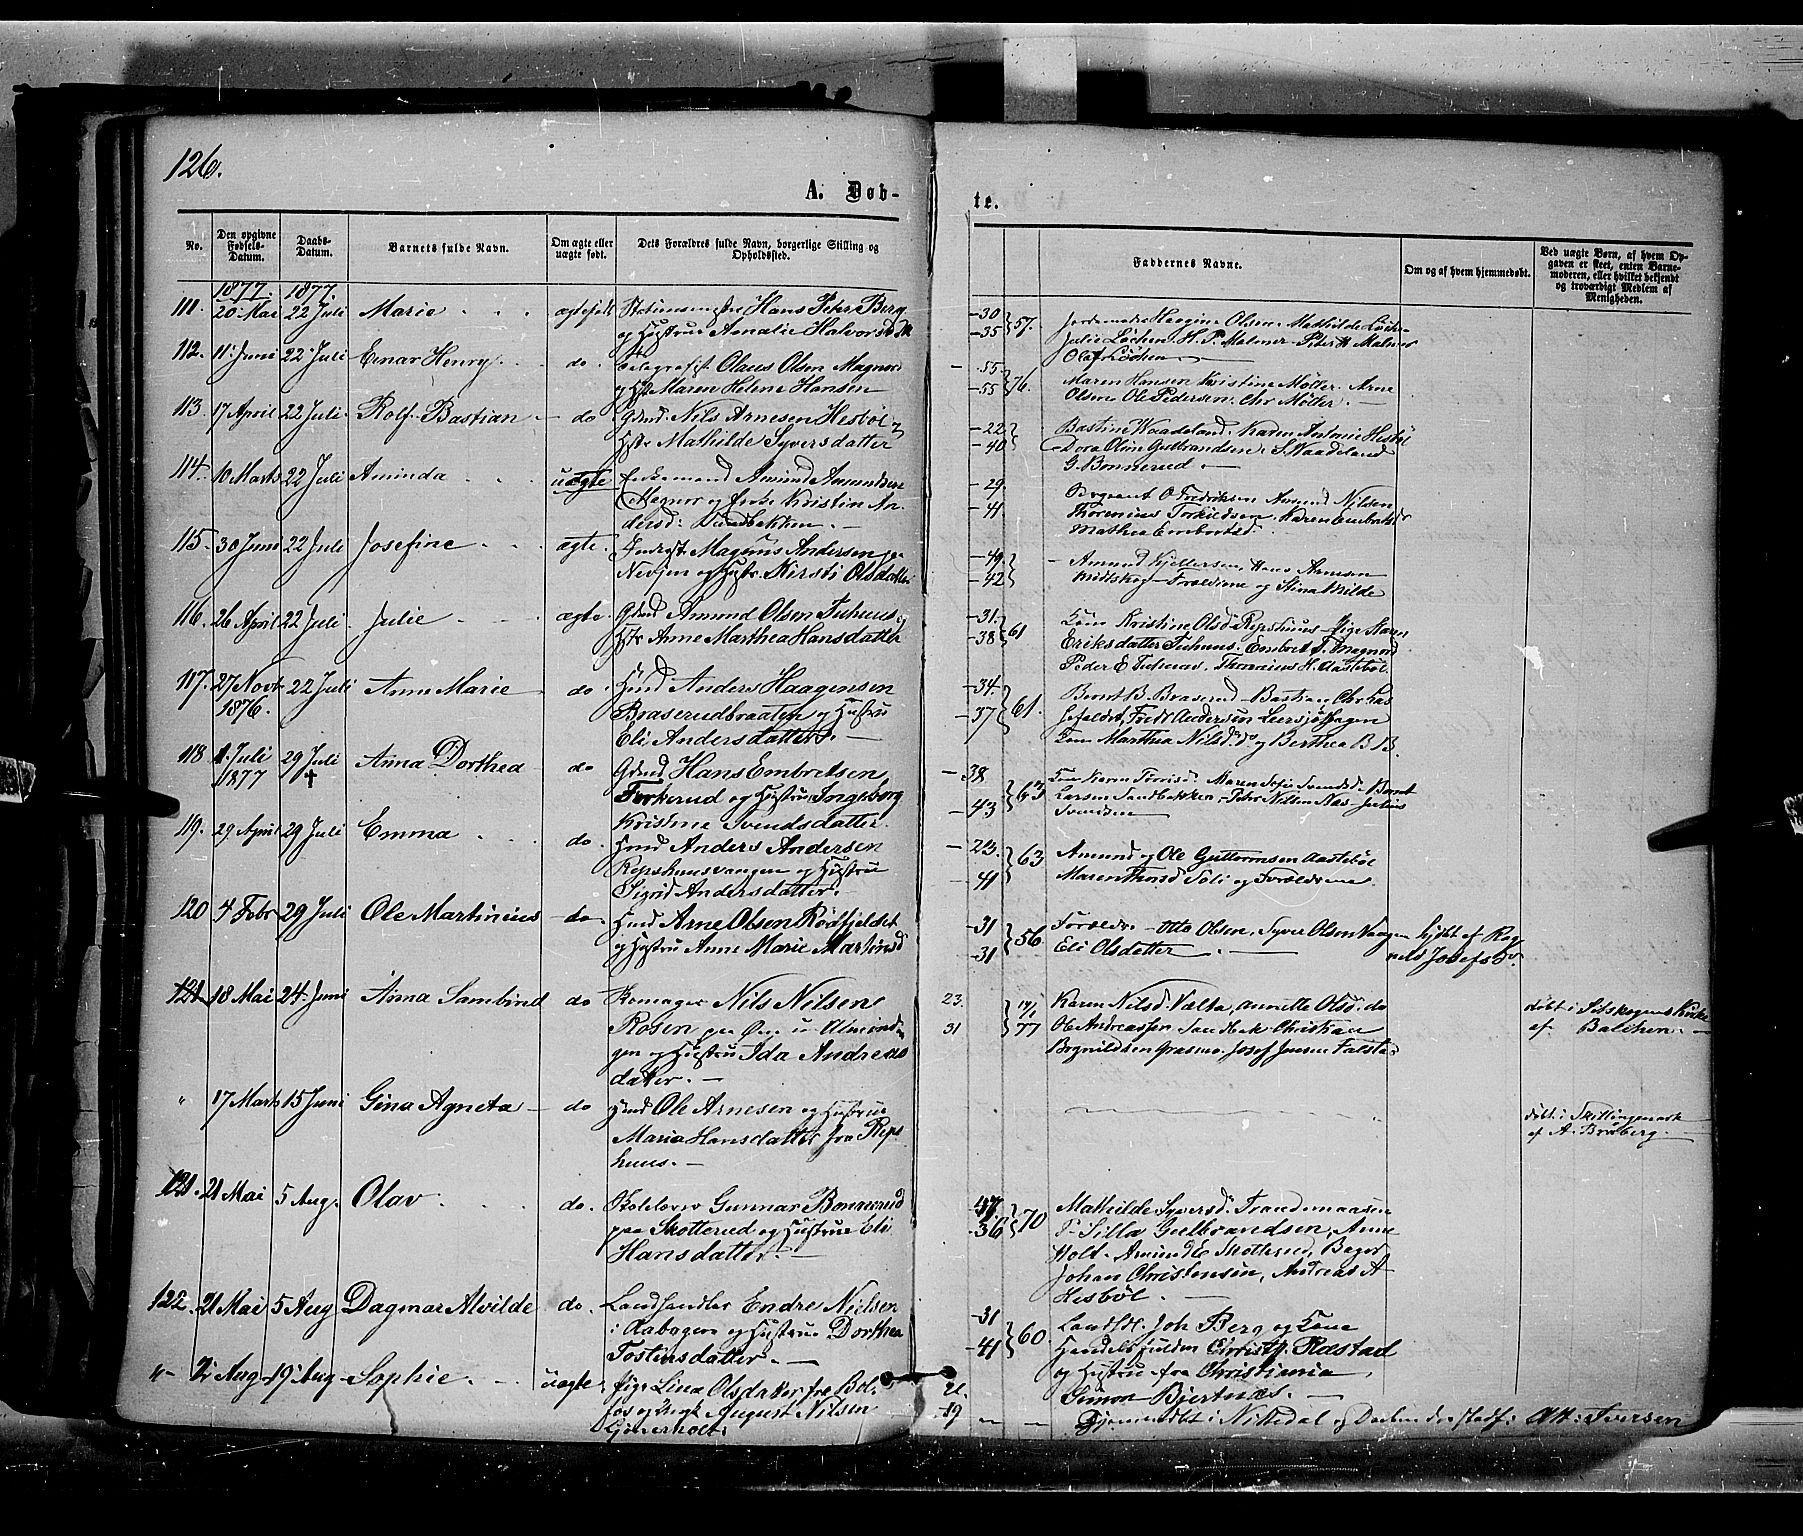 126.
A. Døb-
te.
No.
Den opgivne Fødsels-Datum.
Daabs-Datum.
Barnets fulde Navn.
Om ægte eller uægte født.
Dets Forældres fulde Navn, borgerlige Stilling og Opholdssted.
Faddernes Navne.
Om og af hvem hjemmedøbt.
Ved uægte Børn, af hvem Opgaven er skeet, enten Barnemoderen, eller hvilket bekjendt og troværdigt Medlem af Menigheden.
1877. 1877.
111. 20 Mai 22 Juli Marie ægtefødt Stationsmester Hans Peter Berg
og Hustru Amalie Halvorsen
-30 -35 } 57. Jordemoder Haagine Olsen. Mathilde
Julie Løchen. H. P. Malmer. Peter H Malmer
Olaf Løchen
112. 11 Juni 22 Juli Einar Henry do. Telegrafist Olaus Olsen Magnor
og Hst Maren Helene Hansen
-55. -55 } 76. Maren Hansen Kristine Møller. Arne
Olsen Ole Pedersen. Chr Møller.
113. 17 April 22 Juli Rolf Bastian do Gdmd. Nils Arnesen Hesbøl og
Hstr Mathilde Syversdatter
-22 -40 } Bastine Waadeland. Karen Antonie Hesbøl
Dora Oline Gulbrandsen. S. Waadeland
G. Bonnerud.
114. 10 Marts 22 Juli Aminda uægte Enkemand Amund Amundsen
Magnor og Enke Kristin An-
dersd:
-29. -41. } O Fredriksen Amund Nilsen
Thorenius Torkildsen. Karen Embretsdr
Mathea Embretsd.
115. 30 Juni 22 Juli Josefine ægte. Magnus Andersen
og Hustr. Kirsti Olsdatter
-49. -42 } Amund Kjellersen, Hans Arnesen
Forældrene og Stina Milde
116. 26 April 22 Juli Julie ægte. Gdmd Amund Olsen Tuhuus og
Hstr Anne Marthea Hansdatter
-31. -38 } 61 Kone Kristine Olsd. Repshuus. Pige Karen
Eriksdatter Tuhuus. Embret T. Magnor
Peder E Tuhuus. Thorenius H. Aastebøl
117. 27 Novb 1876. 22 Juli Anne Marie do. Hmd Anders Haagensen
Braserudbraaten og Hustru
Eli Andersdatter.
-34. -37 } 61. Bernt B. Braserud. Bastian Chr
Fredr Andersen
Kone Marthea Nilsd. do og Berthea B. B.
118 1. Juli 1877 29 Juli † Anna Dorthea do Gdmd Hans Embretsen
Torkerud og Hustru Ingeborg
Kristine Svendsdatter.
-38 -43 } 63 Kone Karen Tørrisd. Maren Sofie Svendsd. Bernt
Larsen Sandbakken. Peter Nilsen Nas. Julius
Svendsen
119. 29 April 29 Juli Emma do. Hmd Anders Andersen
Repshuusvangen og Hustru
Sigrid Andersdatter.
-23. -41 } 63 Amund og Ole Guttormsen Aastebøl
Maren Thorsd Toli og Forældrene.
120 4 Febr 29 Juli Ole Martinius do. Hmd Arne Olsen Rødfjeldet
og Hustru Anne Marie Martinsd
-31 -31 } 56. Forældre. Otto Olsen, Syver Olsen Vaagen
Eli Olsdatter.
af Rag
nild Josefsdr.
121 18 Mai 24 Juni Anna Sambine do Nils Nilsen
Rosen paa
og Hustru Ida Andreas
datter.
23. 31 } 77 Karen Nilsd. Valta, Annette Olsd. do
Ole Andreassen Sandbæk. Christian
Bryniildsen Grasmo. Josef Jensen
døbt i Setskogens Kirke
af Balchen.
" 17 Marts 15 Juni Gina Agneta do Gmd Ole Arnesen og Hustrue
Maria Hansdatter fra Reps
huus.
døbt i Skillingmark
af A. Broberg.
121. 21 Mai 5 Aug. Olav do. Skolelærer Gunnar Bonnerud
paa Skotterud og Hustrue Eli
Hansdatter.
-37. -36 } 70 Mathilde Syversd. Frue
F. Silla Gulbrandsen, Anne
Holt. Amund E Skotterud, Bager
Johan Christensen, Andreas A
Hesbøl.
122. 21 Mai 5 Aug Dagmar Alvilde do. Landhandler Endre Nielsen
i Aabogen og Hustrue Dorthea
Tostensdatter.
-31 -41 } 60 Landhdl. Joh Berg og Kone
Handelsfuldm Christ. Rastad
og Hustru fra Christiania
Simon Bjertnæs.
"- 2. Aug. 19 Aug. Sophie uægte. Pige Lina Olsdatter fra Bøl
fos og Ungk August Nilsen
21. -19 Hjemmedøbt i Nittedal og Daaben stadf: Att: Iversen